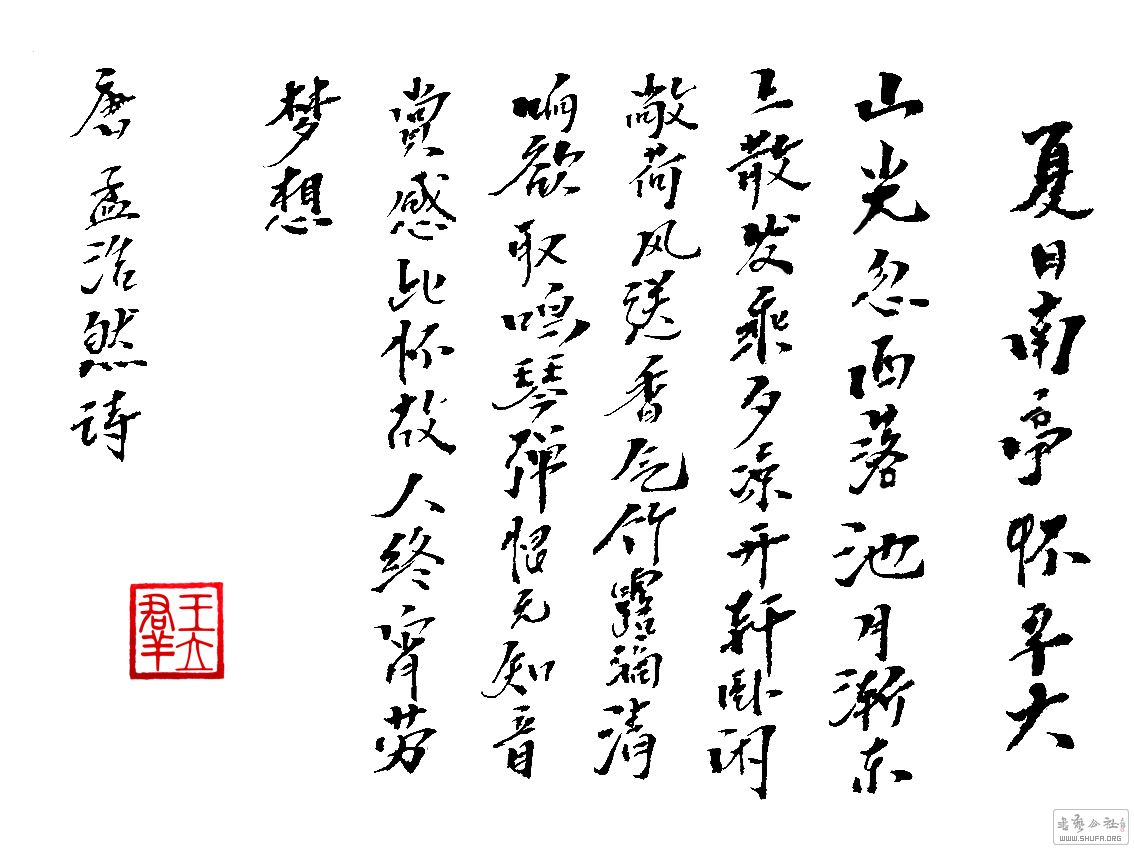 夏日南亭怀辛大
山光忽西落池月渐东
上散发乘夕凉开轩卧闲
敞荷风送香气竹露滴清
响欲取鸣琴弹恨无知音
赏感此怀故人终宵劳
梦想
唐孟浩然诗
王立羣
书艺公社
WWW.SHUFA.ORG